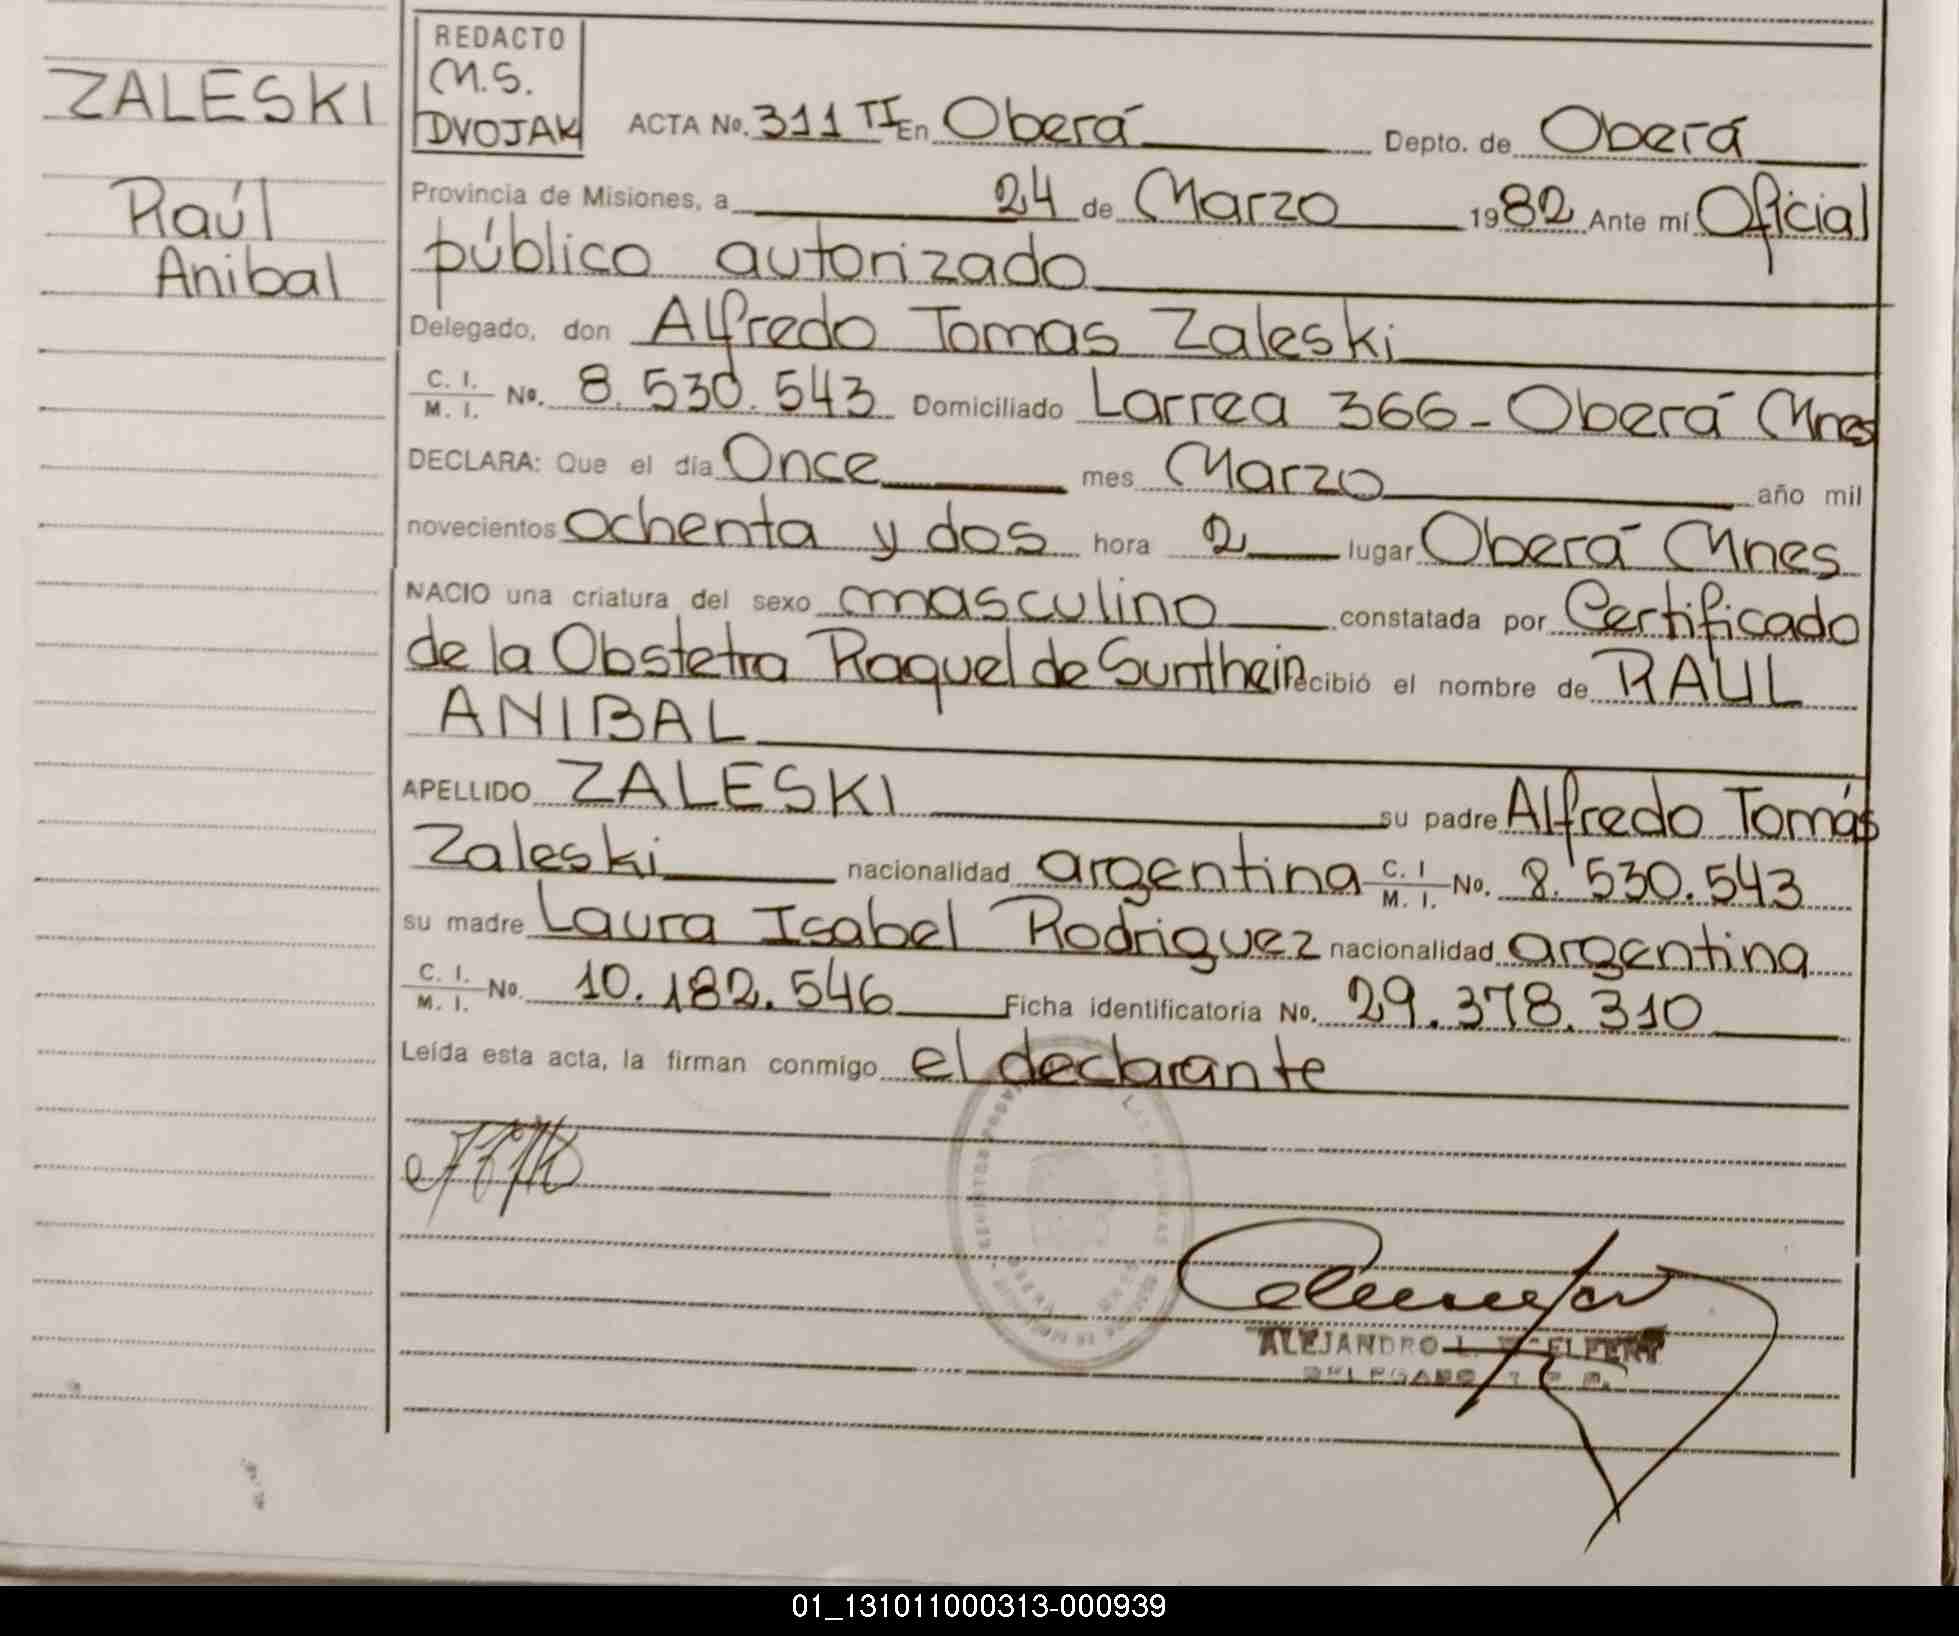 ZALESKI
Raúl
Anibal
REDACTO
M.S.
DVOJAK
ACTA No. 311 TI En Oberá Depto. de Oberá
Provincia de Misiones, a 24 de Marzo 1982 Ante mí Oficial
público autorizado
Delegado, don Alfredo Tomas Zaleski
C. I. / M. I. No. 8.530.543 Domiciliado Larrea 366 - Oberá Mnes
DECLARA: Que el día Once mes Marzo año mil
novecientos ochenta y dos hora 2 lugar Oberá Mnes
NACIO una criatura del sexo masculino constatada por Certificado
de la Obstetra Raquel de Sunthein recibió el nombre de RAUL
ANIBAL
APELLIDO ZALESKI su padre Alfredo Tomás
Zaleski nacionalidad argentina C. I / M. I. No. 8.530.543
su madre Laura Isabel Rodriguez nacionalidad argentina
C. I. / M. I. No. 10.182.546 Ficha identificatoria No. 29.378.310
Leída esta acta, la firman conmigo el declarante
ALEJANDRO L.
DELEGADO
01_131011000313-000939